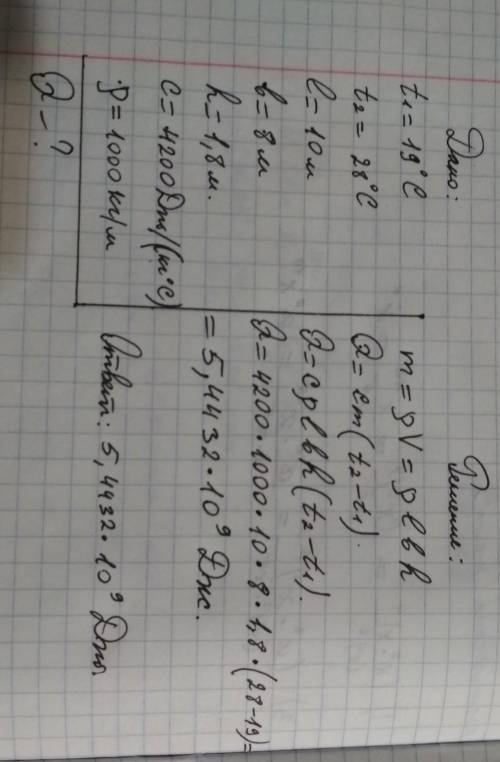 Дано:
t₁ = 19°C
t₂ = 28°C
l = 10 м
b = 8 м
h = 1,8 м.
c = 4200 Дж/(м°C)
ρ = 1000 кг/м
Q - ?
Решение:
m = ρV = ρlbh
Q = cm(t₂-t₁).
Q = cρlbh(t₂-t₁).
Q = 4200·1000·10·8·1,8·(28-19) =
= 5,4432·10⁹ Дж.
Ответ: 5,4432·10⁹ Дж.